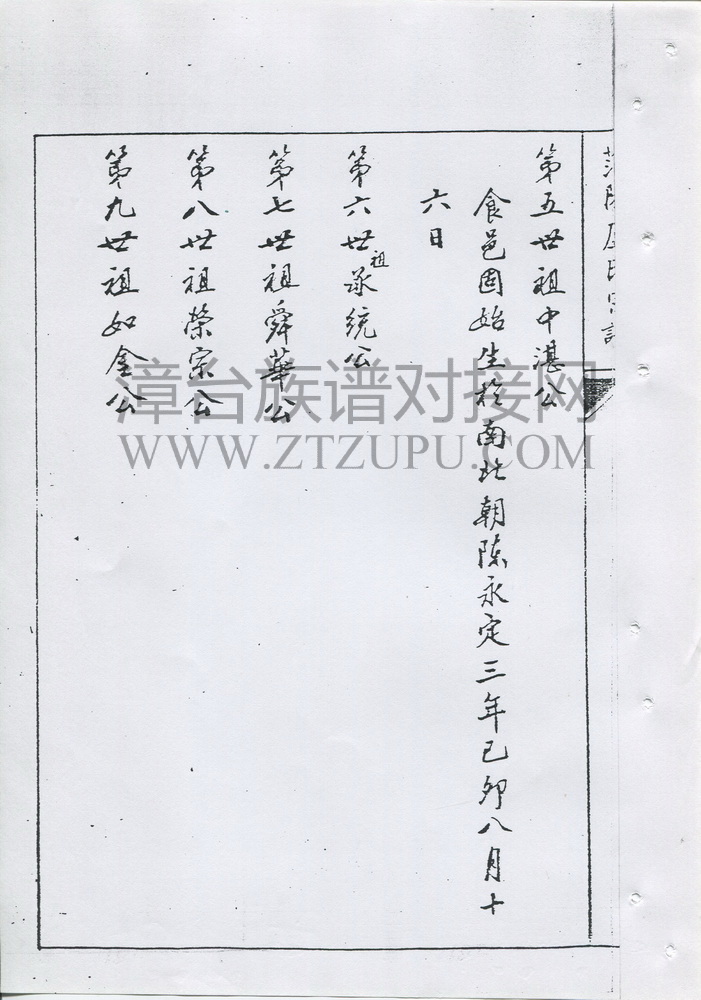 第五世祖中湛公
食邑固始生於南北朝陈永定三年己卯八月十
六日
第六世祖承统公
第七世祖舜華公
第八世祖榮宗公
第九世祖如金公
漳台族谱对接网
WWW.ZTZUPU.COM